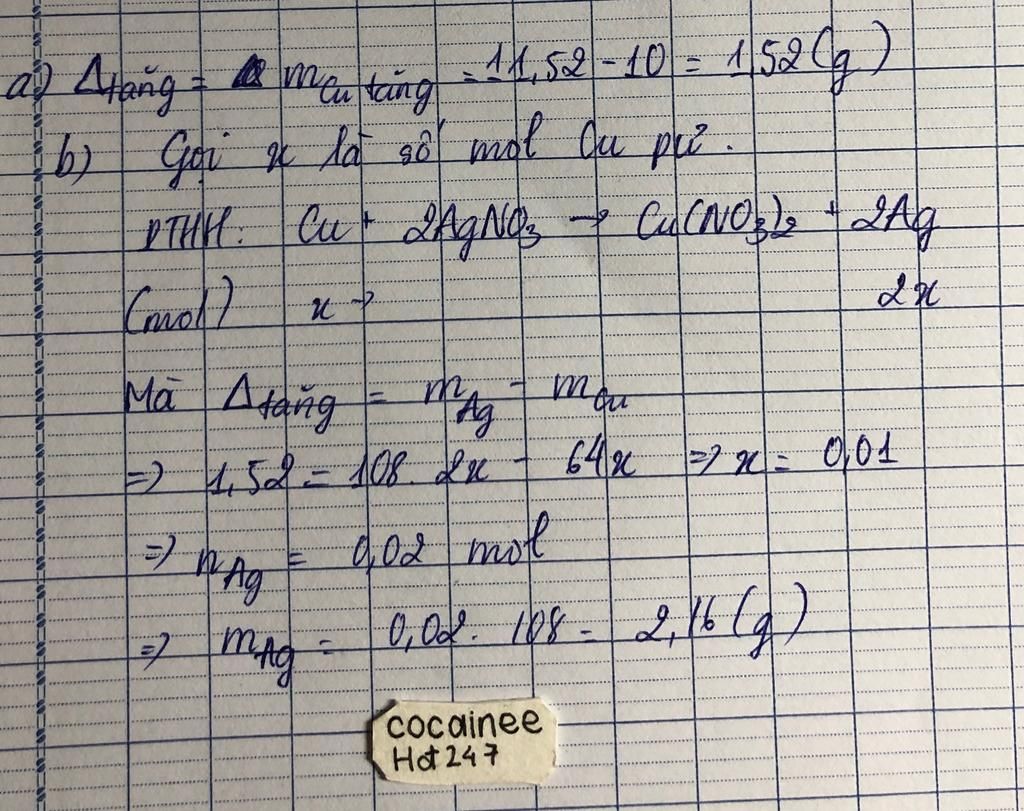 a) Δtăng = mCu tăng = 11,52 - 10 = 1,52 (g)
b) Gọi x là số mol Cu pư.
PTHH: Cu + 2AgNO3 → Cu(NO3)2 + 2Ag
(mol) x → 2x
Mà Δtăng = mAg - mCu
=> 1,52 = 108. 2x - 64x => x = 0,01
=> nAg = 0,02 mol
=> mAg = 0,02. 108 = 2,16 (g)
cocainee
Hd247